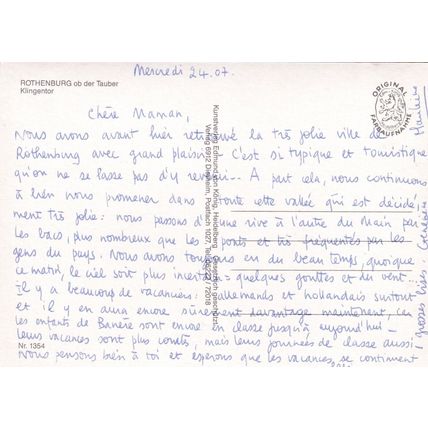 Mercredi 24.07.
ROTHENBURG ob der Tauber
Klingentor
ORIGINAL FARBAUFNAHME
Chère Maman,
Nous avons avant hier retrouvé la très jolie ville de
Rothenburg avec grand plaisir. C'est si typique et touristique
qu'on ne se lasse pas d'y revenir -- A part cela, nous continuons
à bien nous promener dans toute cette vallée qui est décidé-
ment très jolie : nous passons d'une rive à l'autre du Main par
les bacs, plus nombreux que les ponts et très fréquentés par les
gens du pays. Nous avons toujours eu du beau temps, quoique
ce matin, le ciel soit plus incertain = quelques gouttes et du vent --
Il y a beaucoup de vacanciers : allemands et hollandais surtout
et il y en aura encore sûrement davantage maintenant, car
les enfants de Bavière sont encore en classe jusqu'à aujourd'hui -
leurs vacances sont plus courtes, mais leurs journées de classe aussi -
Nous pensons bien à toi et espérons que les vacances se continuent
grosses bises.
Kunstverlag Edmund von König, Heidelberg
Verlag 6912 Dielheim, Postfach 1027
Gesetzlich geschützt
Nr. 1354